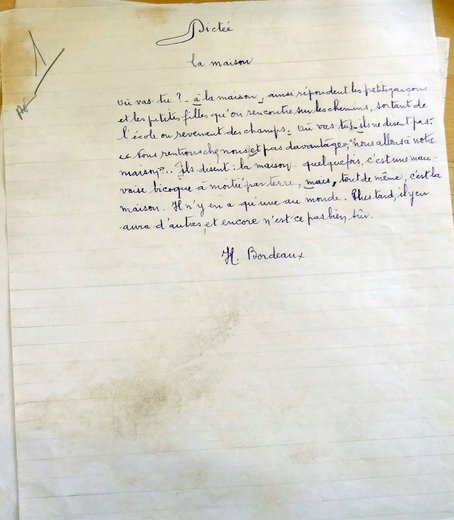 Dictée
La maison
où vas-tu? - à la maison, ainsi répondent les petits garçons
et les petites filles qu'on rencontre sur les chemins, sortant de
l'école ou revenant des champs. Où vas-tu? - ils ne disent pas:
"Nous rentrons chez nous et pas davantage, "nous allons à notre
maison". Ils disent: la maison. quelquefois, c'est une mau-
vaise bicoque à moitié par terre, mais, tout de même, c'est la
maison. Il n'y en a qu'une au monde. Plus tard, il y en
aura d'autres, et encore n'est ce pas bien sûr.
H. Bordeaux